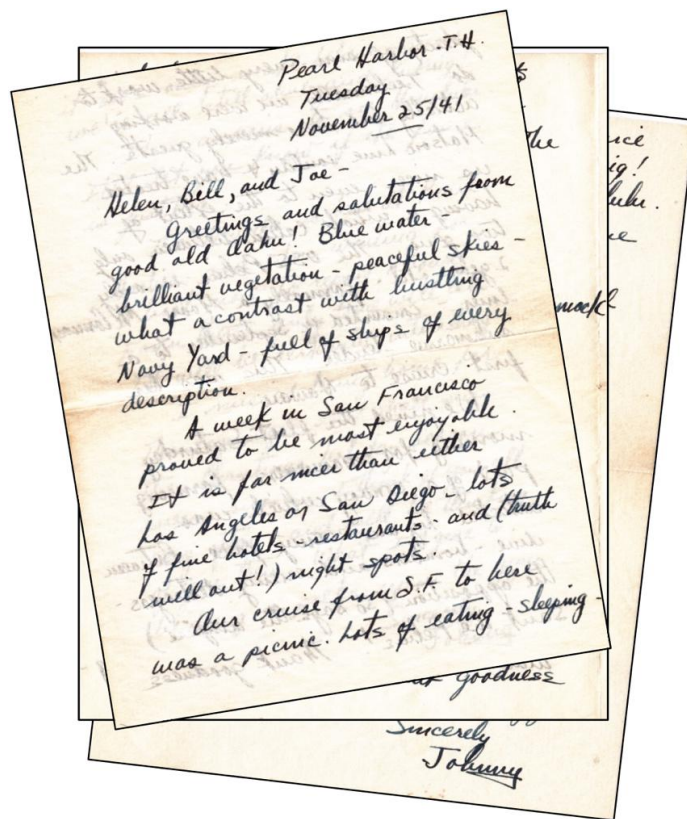 Pearl Harbor - T.H.
Tuesday
November 25/41
Helen, Bill, and Joe -
Greetings and salutations from
good old Oahu! Blue water -
brilliant vegetation - peaceful skies -
what a contrast with bustling
Navy Yard - full of ships of every
description.
A week in San Francisco
proved to be most enjoyable.
It is far nicer than either
Los Angeles or San Diego - lots
of fine hotels - restaurants - and (truth
will out!) night spots.
Our cruise from S.F. to here
was a picnic. Lots of eating - sleeping -
goodness
Sincerely
Johnny